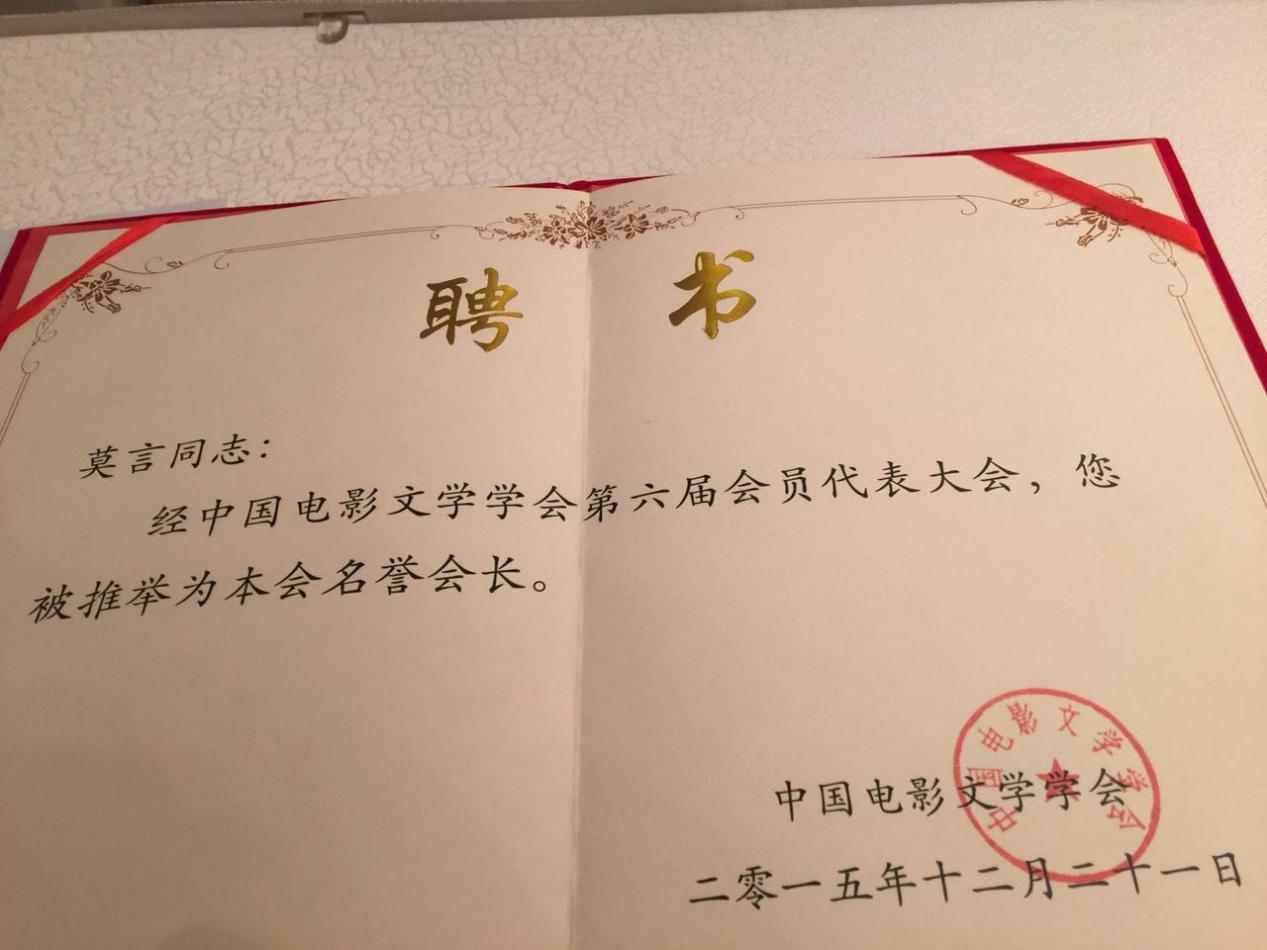 聘书
莫言同志：
经中国电影文学学会第六届会员代表大会，您
被推举为本会名誉会长。
中国电影文学学会
中国电影文学学会
二零一五年十二月二十一日